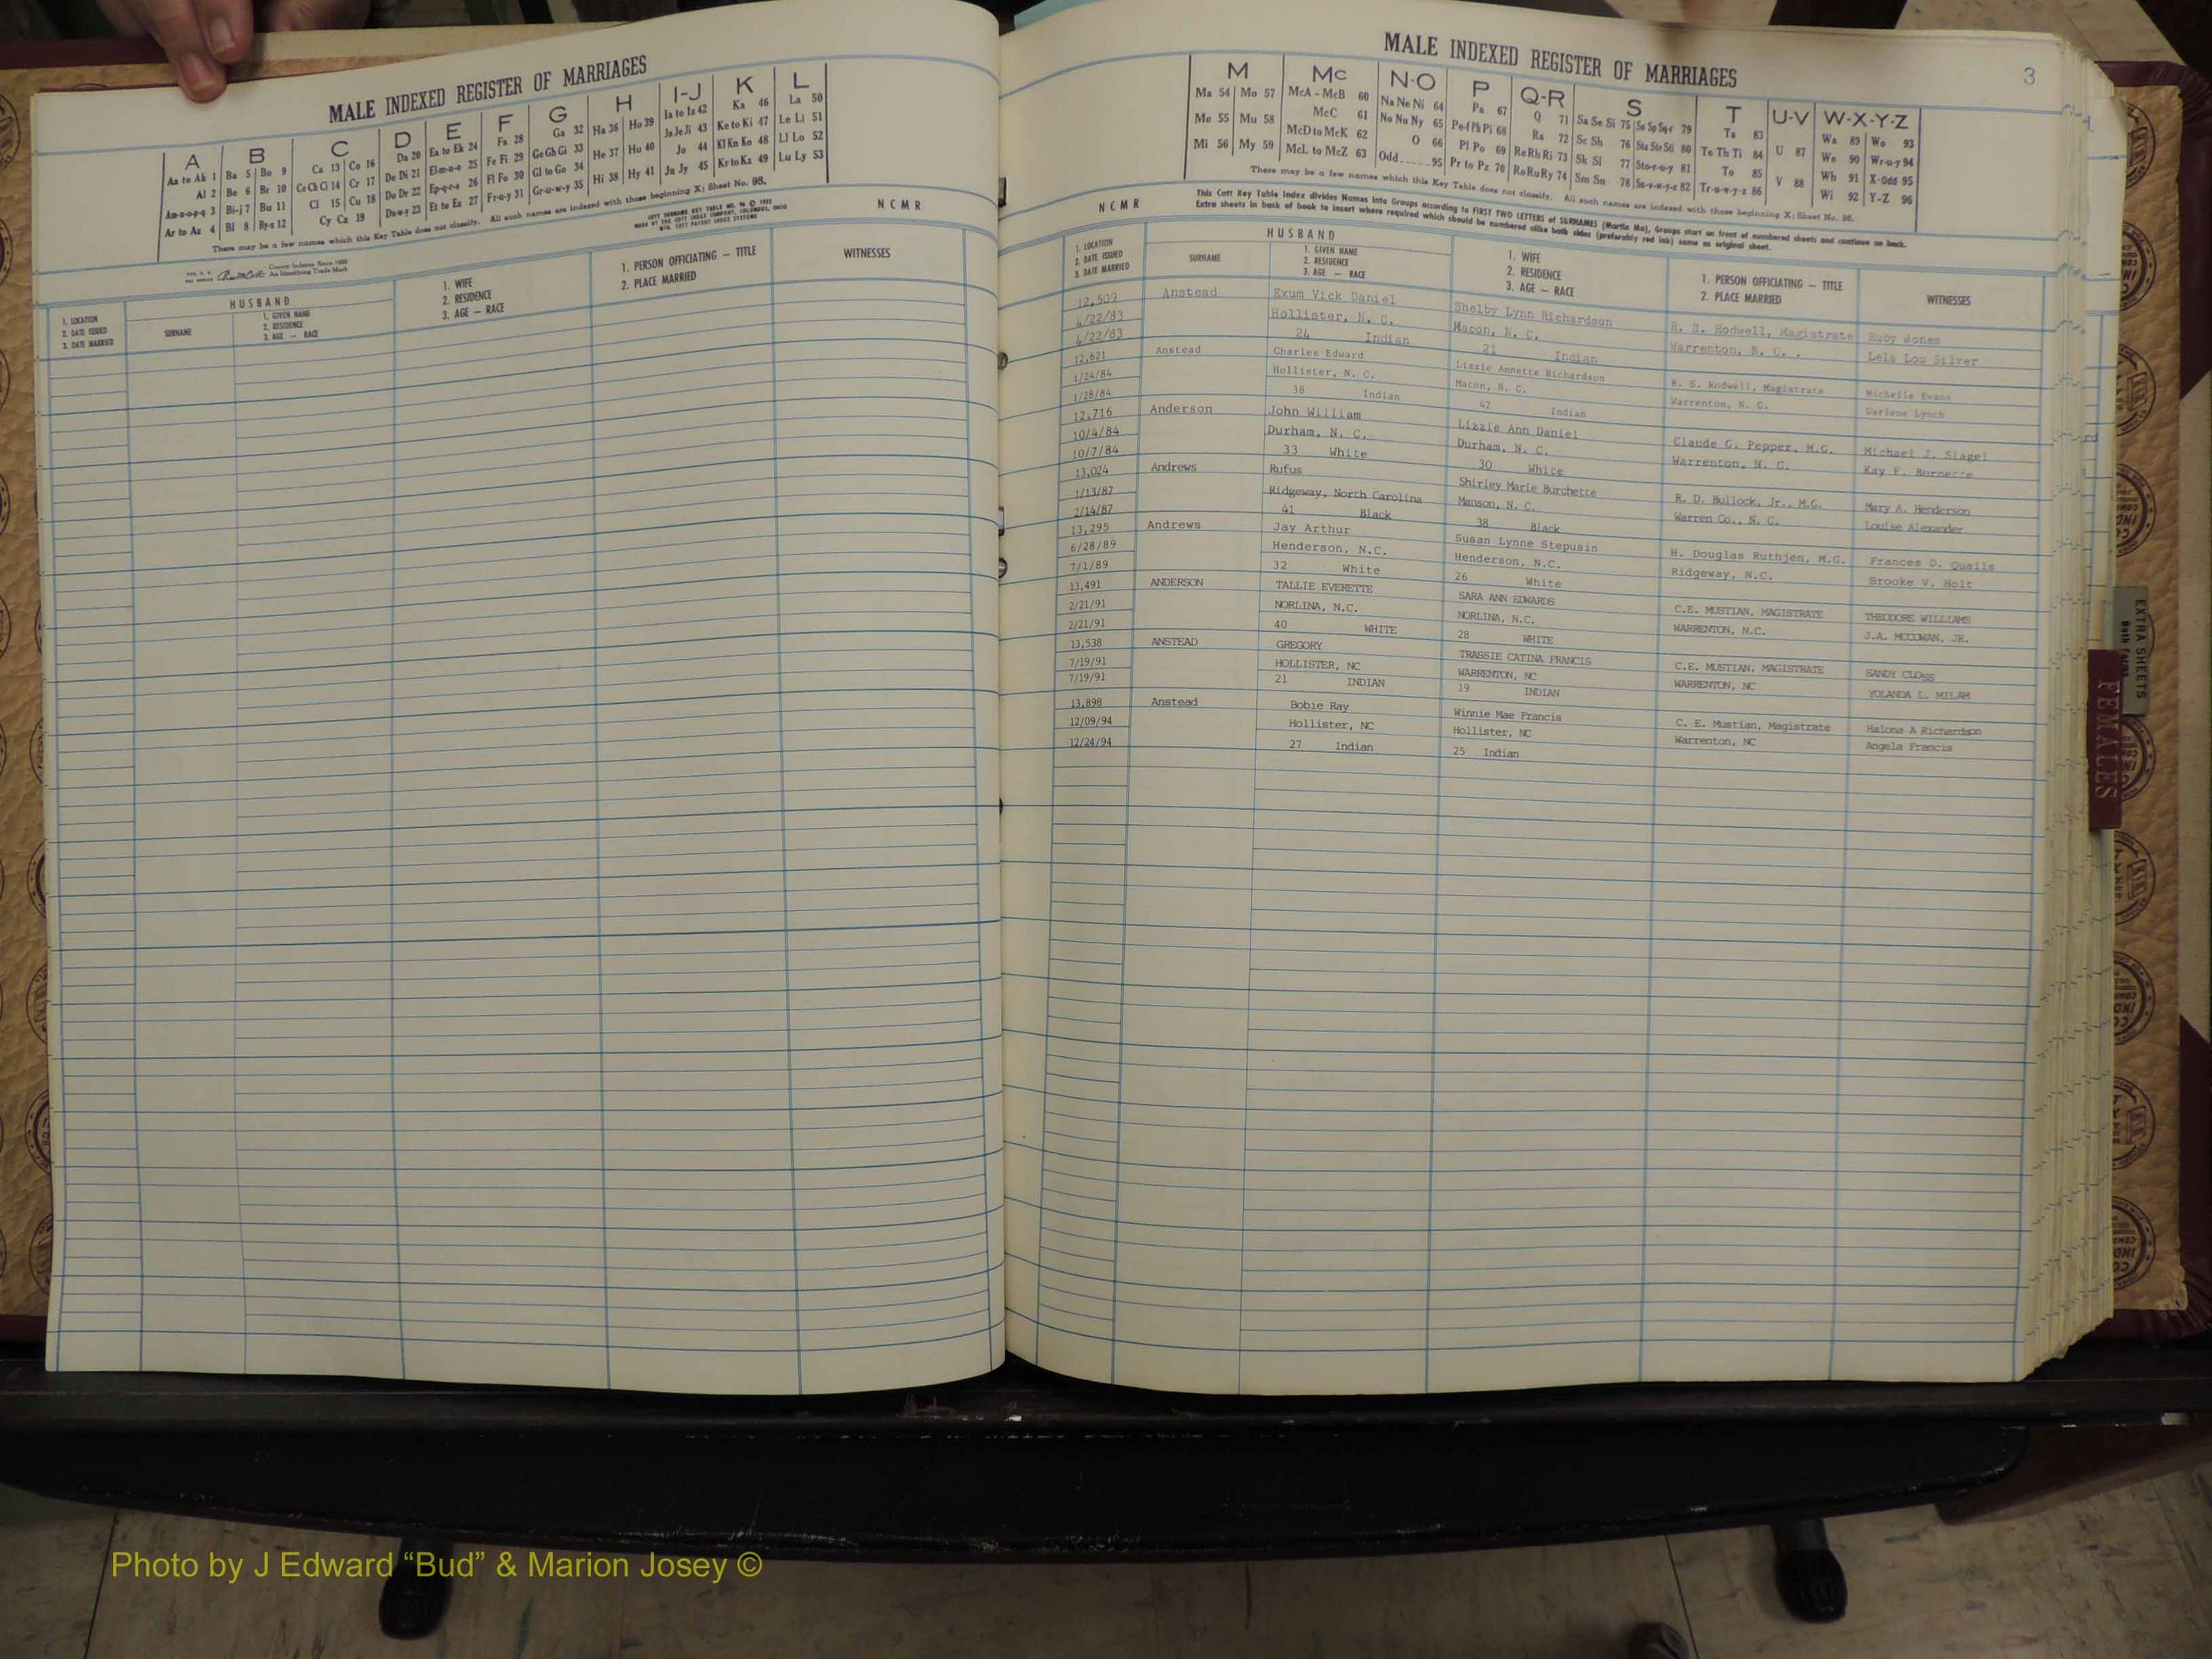 MALE INDEXED REGISTER OF MARRIAGES
A B C D E F G H I-J K L
Aa to Ak 1 Ba 5 Bo 9 Ca 13 Co 16 Da 20 Ea to Ek 24 Fa 28 Ga 32 Ha 36 Ho 39 Ia to Iz 42 Ka 46 La 50
Al 2 Be 6 Br 10 Ce Ch Ci 14 Cr 17 De Di 21 El-m-n-o 25 Fe Fi 29 Ge Gh Gi 33 He 37 Hu 40 Ja Je Ji 43 Ke to Ki 47 Le Li 51
Am-n-o-p-q 3 Bi-j 7 Bu 11 Cl 15 Cu 18 Do Dr 22 Ep-q-r-s 26 Fl Fo 30 Gl to Go 34 Hi 38 Hy 41 Jo 44 Kl Kn Ko 48 Ll Lo 52
Ar to Az 4 Bl 8 By-z 12 Cy Cz 19 Du-w-y 23 Et to Ex 27 Fr-u-y 31 Gr-u-w-y 35 Ju Jy 45 Kr to Kz 49 Lu Ly 53
There may be a few names which this Key Table does not classify. All such names are indexed with those beginning X; Sheet No. 95.
NCMR
County Indexes Since 1888
An Identifying Trade Mark
1. LOCATION
2. DATE ISSUED
3. DATE MARRIED
HUSBAND
SURNAME
1. GIVEN NAME
2. RESIDENCE
3. AGE — RACE
1. WIFE
2. RESIDENCE
3. AGE — RACE
1. PERSON OFFICIATING — TITLE
2. PLACE MARRIED
WITNESSES
MALE INDEXED REGISTER OF MARRIAGES
3
M Mc N-O P Q-R S T U-V W-X-Y-Z
Ma 54 Mo 57 McA - McB 60 Na Ne Ni 64 Pa 67 Q 71 Sa Se Si 75 So Sp Sq-r 79 Ta 83 U 87 Wa 89 Wo 93
Me 55 Mu 58 McC 61 No Nu Ny 65 Pe-f Ph Pi 68 Ra 72 Sc Sh 76 Sta Ste Sti 80 Te Th Ti 84 V 88 We 90 Wr-u-y 94
Mi 56 My 59 McD to McK 62 O 66 Pl Po 69 Re Rh Ri 73 Sk Sl 77 Sto-r-u-y 81 To 85 Wh 91 X-Odd 95
McL to McZ 63 Odd 95 Pr to Pz 70 Ro Ru Ry 74 Sm Sn 78 Su-v-w-y-z 82 Tr-u-w-y-z 86 Wi 92 Y-Z 96
There may be a few names which this Key Table does not classify. All such names are indexed with those beginning X; Sheet No. 95.
NCMR
This Cott Key Table Index divides Names into Groups according to FIRST TWO LETTERS of SURNAMES (Martin Ma), Groups start on front of numbered sheets and continue on back.
Extra sheets in back of book to insert where required which should be numbered alike both sides (preferably red ink) same as original sheet.
1. LOCATION
2. DATE ISSUED
3. DATE MARRIED
HUSBAND
SURNAME
1. GIVEN NAME
2. RESIDENCE
3. AGE — RACE
1. WIFE
2. RESIDENCE
3. AGE — RACE
1. PERSON OFFICIATING — TITLE
2. PLACE MARRIED
WITNESSES
12,509 Anstead Exum Vick Daniel Shelby Lynn Richardson R. S. Rodwell, Magistrate Ruby Jones
4/22/83 Hollister, N. C. Macon, N. C. Warrenton, N. C. Lela Lou Silver
4/22/83 24 Indian 21 Indian
12,621 Anstead Charles Edward Lizzie Annette Richardson R. S. Rodwell, Magistrate Michelle Evans
1/24/84 Hollister, N. C. Macon, N. C. Warrenton, N. C. Darlene Lynch
1/28/84 38 Indian 42 Indian
12,716 Anderson John William Lizzie Ann Daniel Claude G. Pepper, M.G. Michael J. Slagel
10/4/84 Durham, N. C. Durham, N. C. Warrenton, N. C. Kay F. Burnette
10/7/84 33 White 30 White
13,024 Andrews Rufus Shirley Marie Burchette R. D. Bullock, Jr., M.G. Mary A. Henderson
1/13/87 Ridgeway, North Carolina Manson, N. C. Warren Co., N. C. Louise Alexander
2/14/87 41 Black 38 Black
13,295 Andrews Jay Arthur Susan Lynne Stepusin H. Douglas Ruthjen, M.G. Frances D. Qualls
6/28/89 Henderson, N.C. Henderson, N.C. Ridgeway, N.C. Brooke V. Holt
7/1/89 32 White 26 White
13,491 ANDERSON TALLIE EVERETTE SARA ANN EDWARDS C.E. MUSTIAN, MAGISTRATE THEODORE WILLIAMS
2/21/91 NORLINA, N.C. NORLINA, N.C. WARRENTON, N.C. J.A. MCCOWAN, JR.
2/21/91 40 WHITE 28 WHITE
13,538 ANSTEAD GREGORY TRASSIE CATINA FRANCIS C.E. MUSTIAN, MAGISTRATE SANDY CLOSS
7/19/91 HOLLISTER, NC WARRENTON, NC WARRENTON, NC YOLANDA L. MILAM
7/19/91 21 INDIAN 19 INDIAN
13,898 Anstead Bobie Ray Winnie Mae Francis C. E. Mustian, Magistrate Halona A Richardson
12/09/94 Hollister, NC Hollister, NC Warrenton, NC Angela Francis
12/24/94 27 Indian 25 Indian
EXTRA SHEETS
FEMALES
Photo by J Edward “Bud” & Marion Josey ©